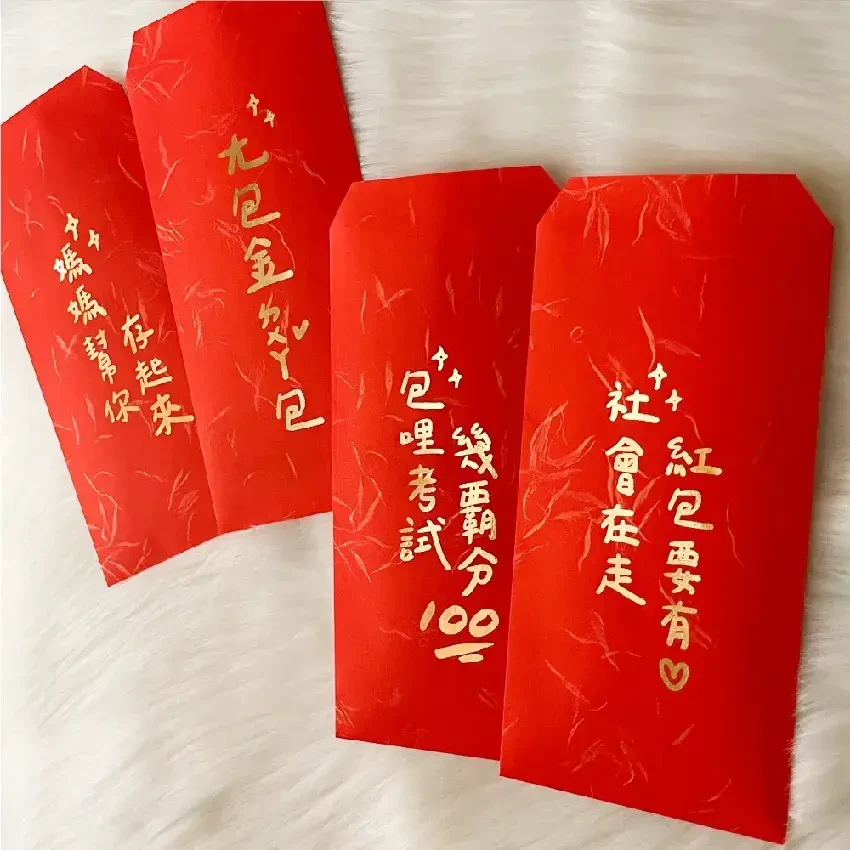 媽媽幫你
存起來
ㄤ包金ㄉㄨㄚˇ包
包哩考試
幾霸分
100
社會在走
紅包要有♡